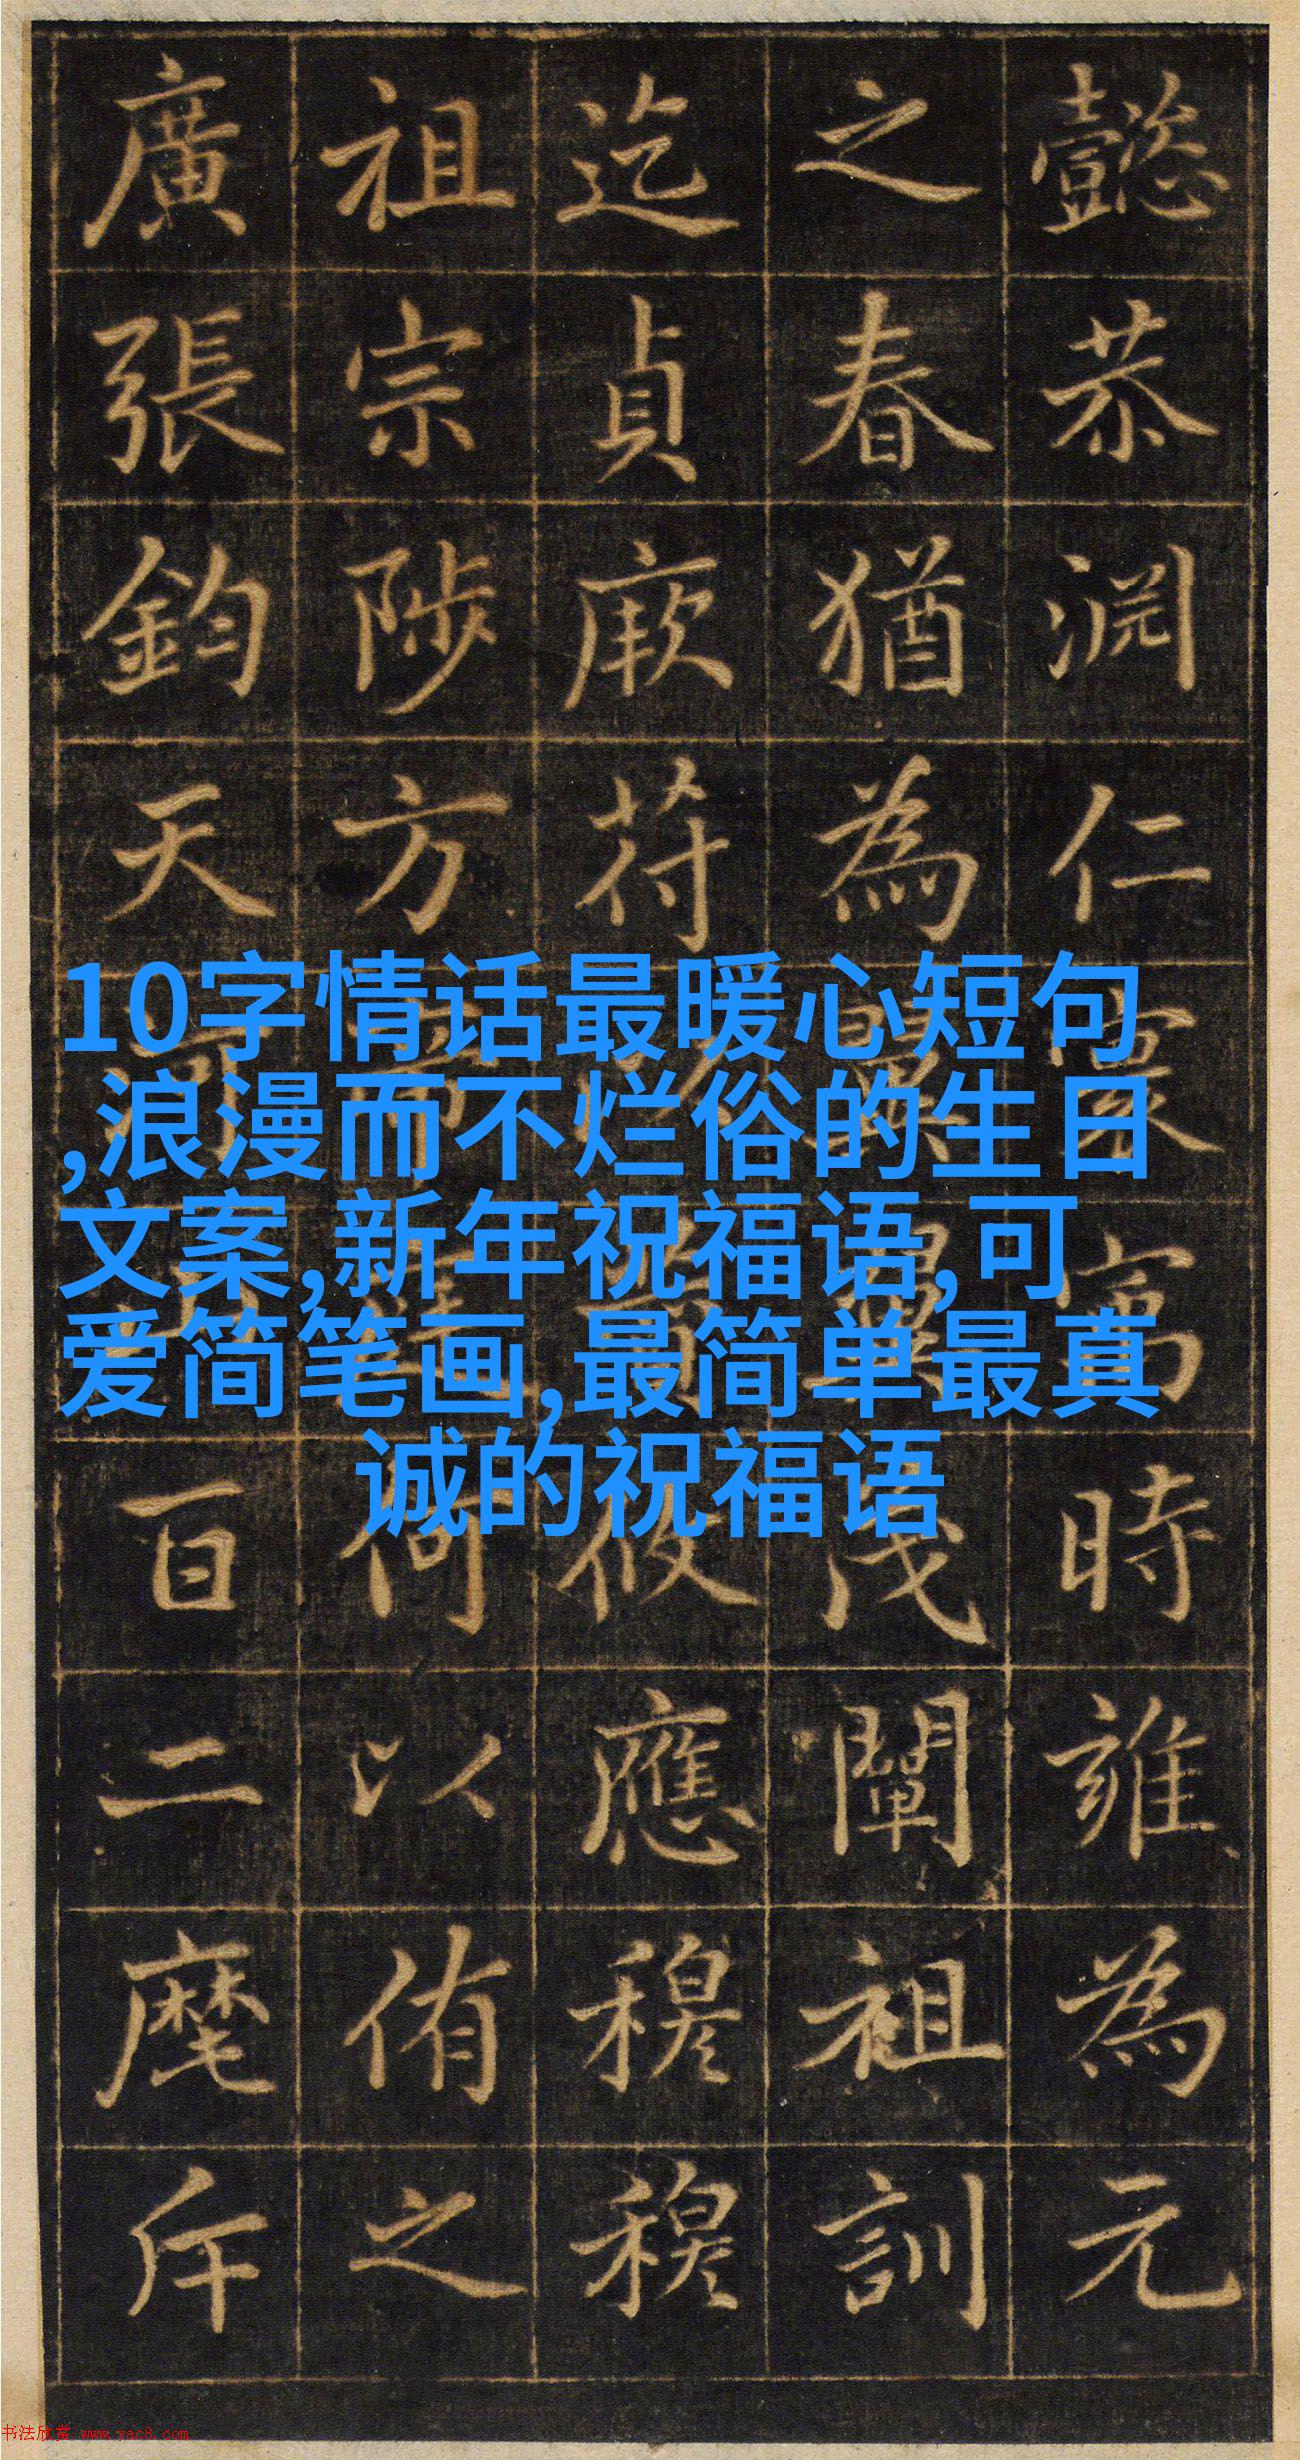 懿恭渊仁寰寓時雍為元
之春猶為翼翼茂闡祖訓
迄貞厥苻攸應穆穆
祖宗陟方荷以侑之
廣張鈞天百二麾斥
10字情话最暖心短句
,浪漫而不烂俗的生日
文案,新年祝福语,可
爱简笔画,最简单最真
诚的祝福语
书法欣赏 www.yac8.com